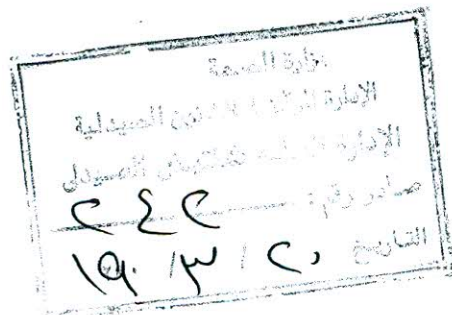 وزارة الصحة
الإدارة المركزية للشئون الصيدلية
الإدارة العامة للتفتيش الصيدلي
صادر رقم : ٢٤٢
التاريخ ٢٠ / ٣ / ١٩